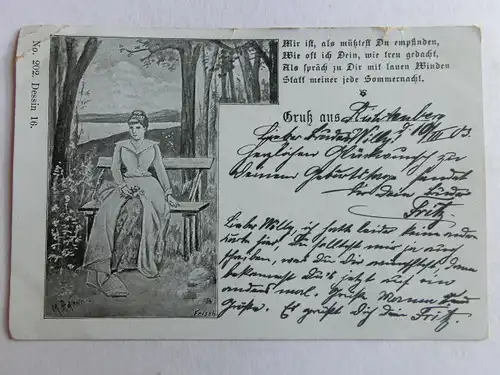 No. 202. Dessin 16.
Mir ist, als müßtest Du empfinden,
Wie oft ich Dein, wie treu gedacht,
Als spräch zu Dir mit lauen Winden
Statt meiner jede Sommernacht.
Gruß aus
03.
Lieber Bruder Willy!
herzlichen Glückwunsch zu
Deinem Geburtstage sendet
Dir Dein Bruder
Fritz.
Liebe Willy, ich hatte leider keine andere
hier. Du solltest mir ja nun
schreiben, was Du Dir wünschtest, dann
bekommst Du's jetzt auf ein
andres mal. Grüße Mama und
Grüße. Es grüßt Dich Dein Fritz.
Frisch